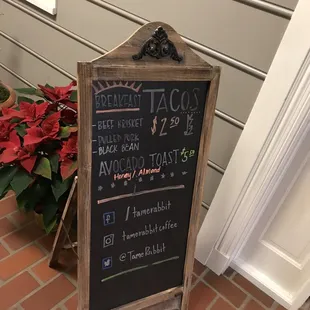 BREAKFAST TACOS
- BEEF BRISKET
- PULLED PORK
- BLACK BEAN
$2.50
AVOCADO TOAST
Honey / Almond
/tamerabbit
tamerabbitcoffee
@TameRabbit